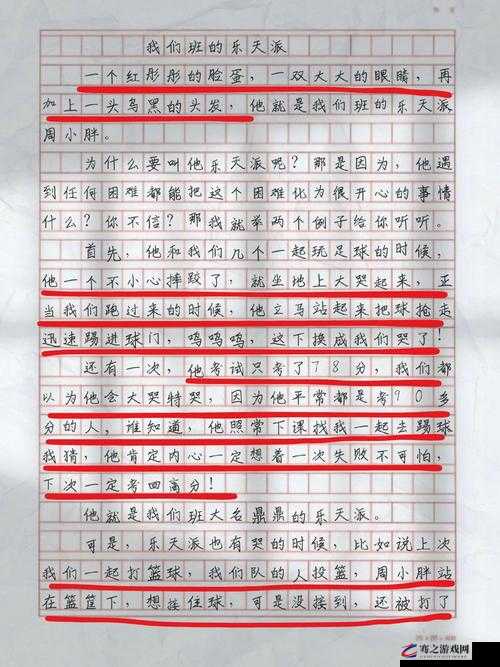 我们班的乐天派
一个红彤彤的脸蛋，一双大大的眼睛，再
加上一头乌黑的头发，他就是我们班的乐天派
周小胖。
为什么要叫他乐天派呢？那是因为，他遇
到任何困难都能把这个困难化为很开心的事情
什么？你不信？那我就举两个例子给你听听。
首先，他和我们几个一起玩足球的时候，
他一个不小心摔跤了，就坐地上大哭起来，正
当我们跑过来的时候，他立马站起来把球抢走
迅速踢进球门，呜呜呜，这下换成我们哭了！
还有一次，他考试只考了78分，我们都
以为他会大哭特哭，因为他平常都是考90多
分的人，谁知道，他照常下课找我一起去踢球
我猜，他肯定内心一定想着一次失败不可怕，
下次一定考回高分！
他就是我们班大名鼎鼎的乐天派。
可是，乐天派也有哭的时候，比如说上次
我们一起打篮球，我们队的人投篮，周小胖站
在篮筐下，想接住球，可是没接到，还被打了
骞之游戏网